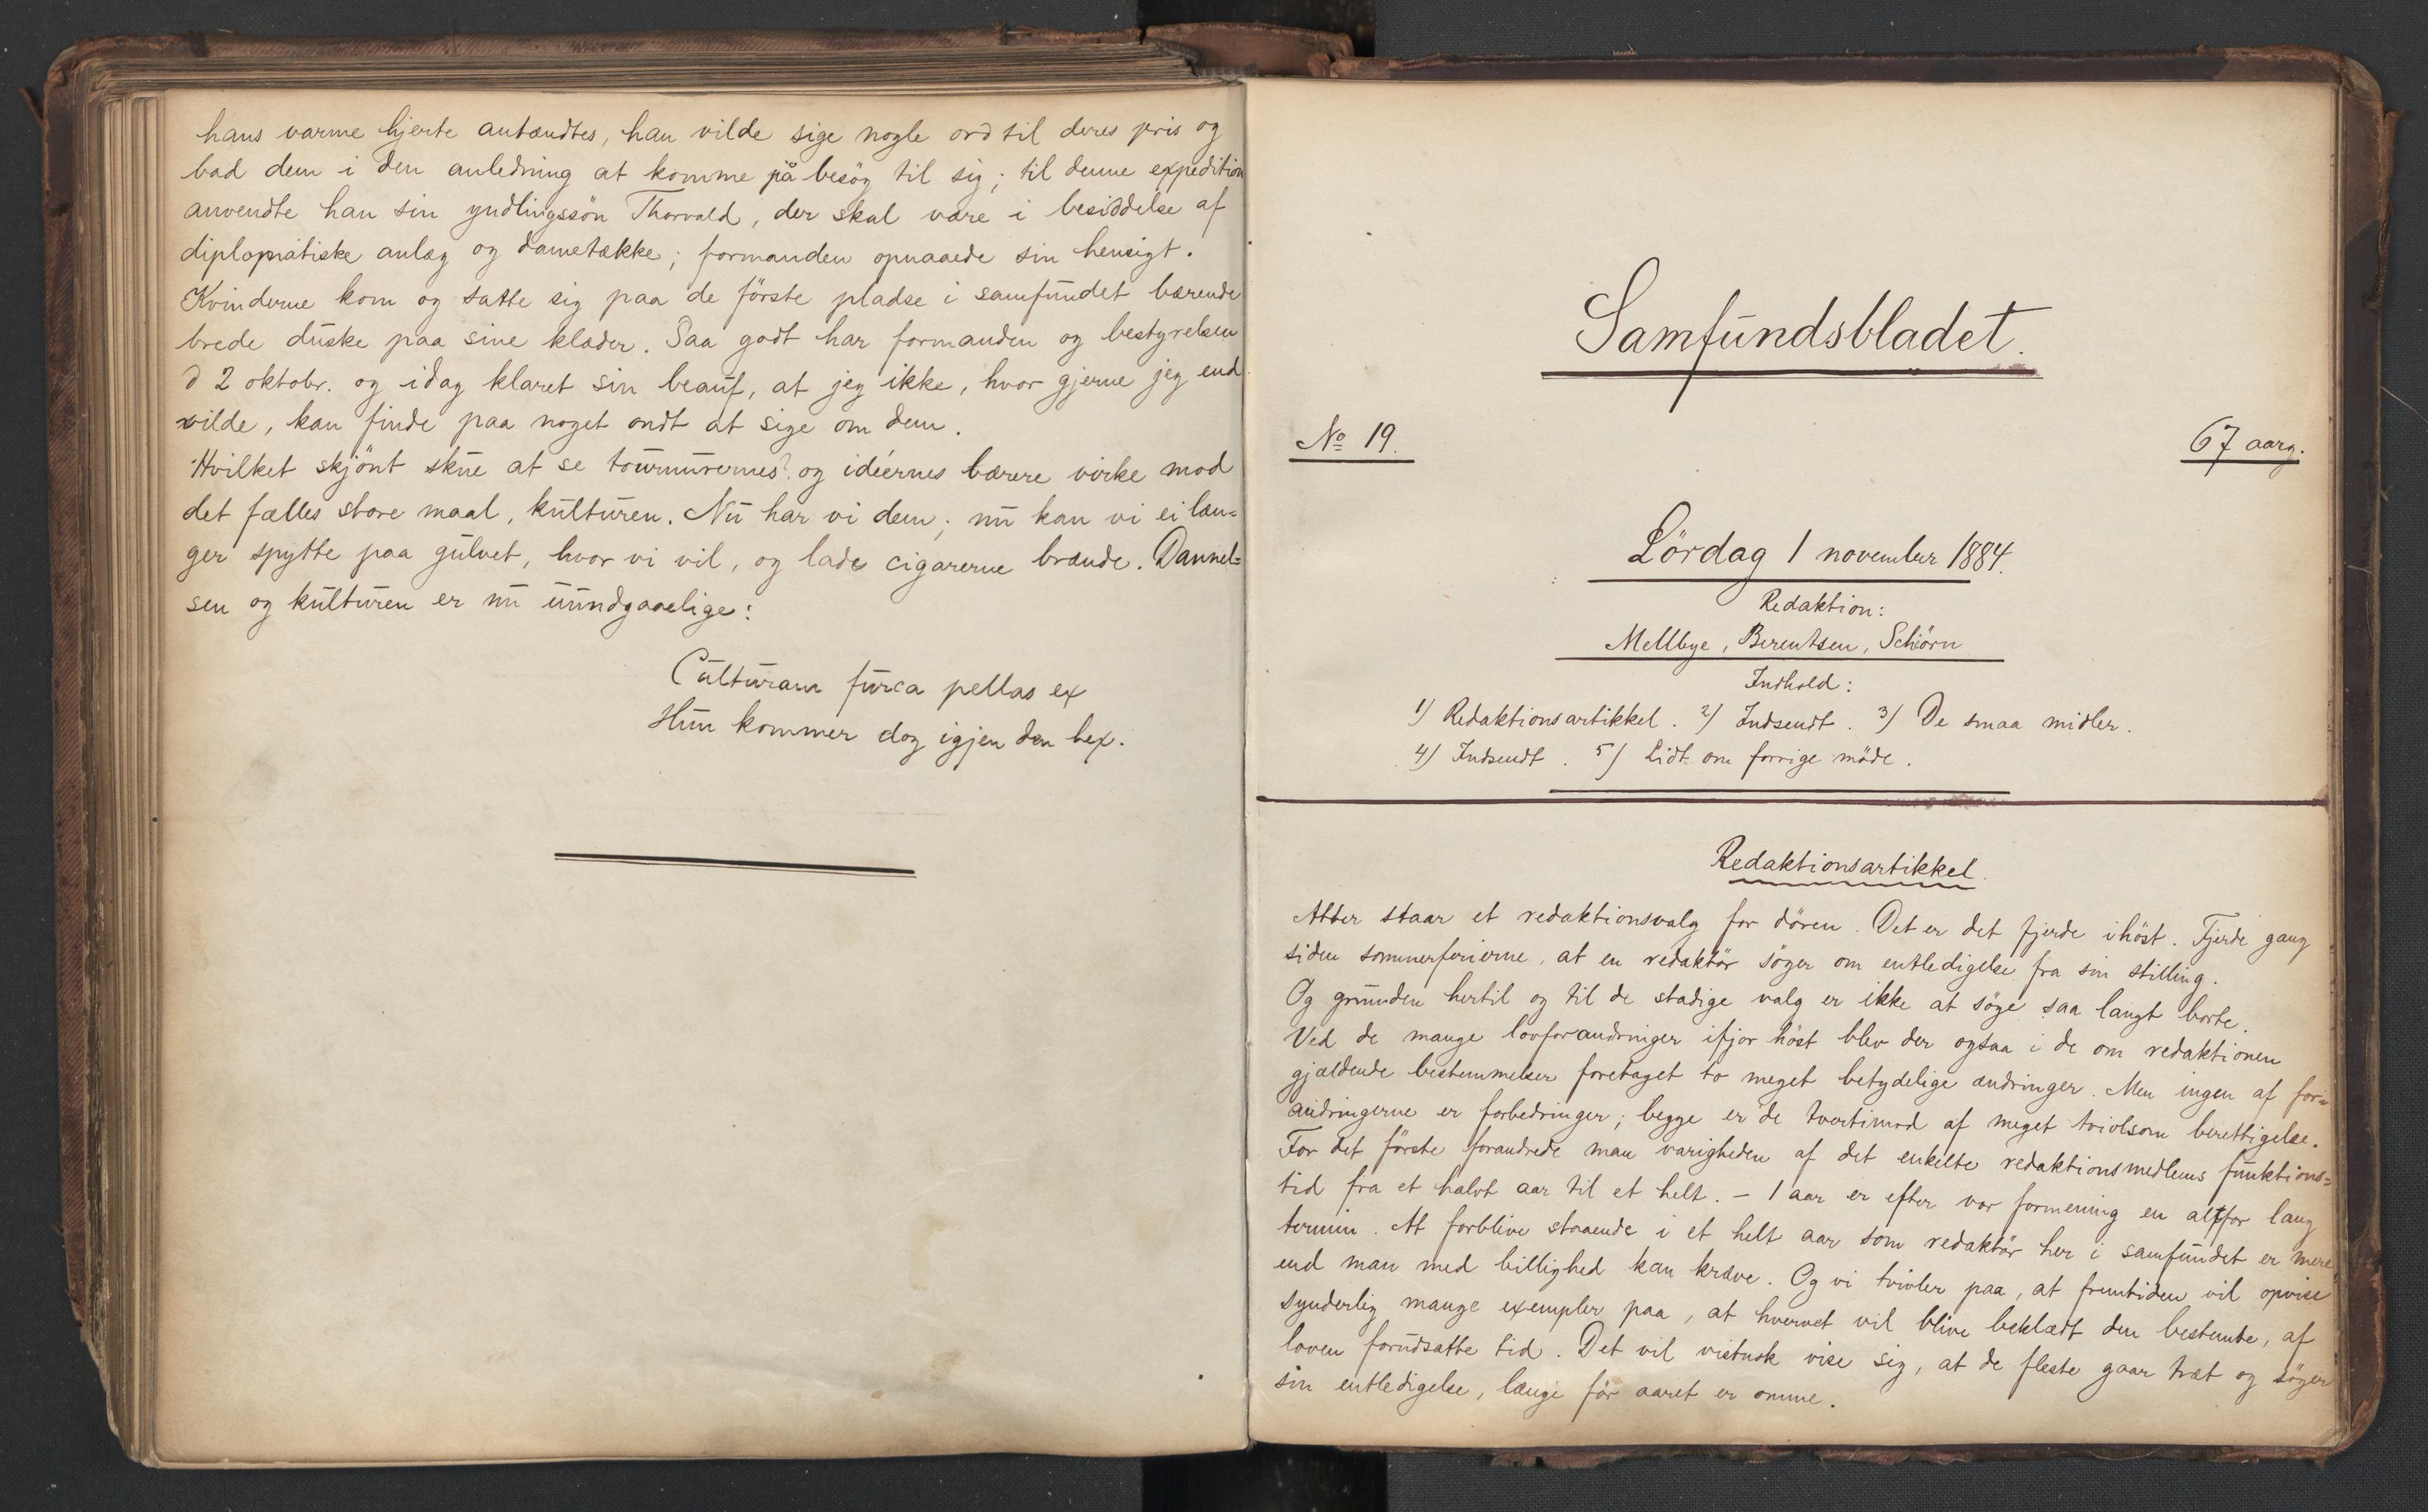 hans varme hjerte antændtes, han vilde sige nogle ord til deres pris og
bad dem i den anledning at komme på besög til sig; til denne expedition
anvendte han sin yndlingssön Thorvald, der skal være i besiddelse af
diplomatiske anlæg og dametække; formanden opnaaede sin hensigt.
Kvinderne kom og satte sig paa de förste pladse i samfundet bærende
brede duske paa sine klæder. Saa godt har formanden og bestyrelsen
d 2 oktobr. og idag klaret sin beauf, at jeg ikke, hvor gjerne jeg end
vilde, kan finde paa noget ondt at sige om dem.
Hvilket skjönt skue at se tournurernes og idéernes bærere virke mod
det fælles store maal, kulturen. Nu har vi dem; nu kan vi ei læn=
ger spytte paa gulvet, hvor vi vil, og lade cigarerne brænde. Dannel=
sen og kulturen er nu uundgaaelige:
Culturam furca pellas ex
Hun kommer dog igjen den hex.
Samfundsbladet.
No 19.
67 aarg.
Lördag 1 november 1884.
Redaktion:
Mellbye, Berentsen, Schiörn
Indhold:
1) Redaktionsartikkel. 2) Indsendt. 3) De smaa midler.
4) Indsendt. 5) Lidt om forrige möde.
Redaktionsartikkel.
Atter staar et redaktionsvalg for dören. Det er det fjerde ihöst. Fjerde gang
siden sommerferierne, at en redaktör söger om entledigelse fra sin stilling.
Og grunden hertil og til de stadige valg er ikke at söge saa langt borte.
Ved de mange lovforandringer ifjor höst blev der ogsaa i de om redaktionen
gjældende bestemmelser foretaget to meget betydelige ændringer. Men ingen af for=
andringerne er forbedringer; begge er de tvertimod af meget tvivlsom berettigelse.
For det förste forandrede man varigheden af det enkelte redaktionsmedlems funktions=
tid fra et halvt aar til et helt. - 1 aar er efter vor formening en altfor lang
termin. At forblive staaende i et helt aar som redaktör her i samfundet er mere
end man med billighed kan kræve. Og vi tvivler paa, at fremtiden vil opvise
synderlig mange exempler paa, at hvervet vil blive beklædt den bestemte, af
loven forudsatte tid. Det vil vistnok vise sig, at de fleste gaar træt og söger
sin entledigelse, længe för aaret er omme.